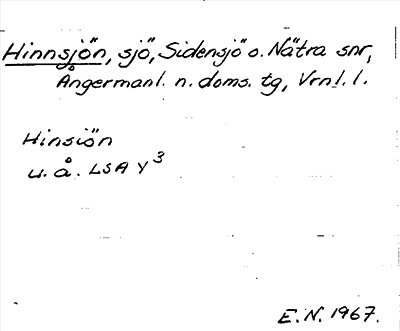 Hinnsjön, sjö, Sidensjö o. Nätra snr,
Ångermanl. n. doms. tg, Vrnl. l.
Hinsiön
u. å. LSA Y3
E. N. 1967.